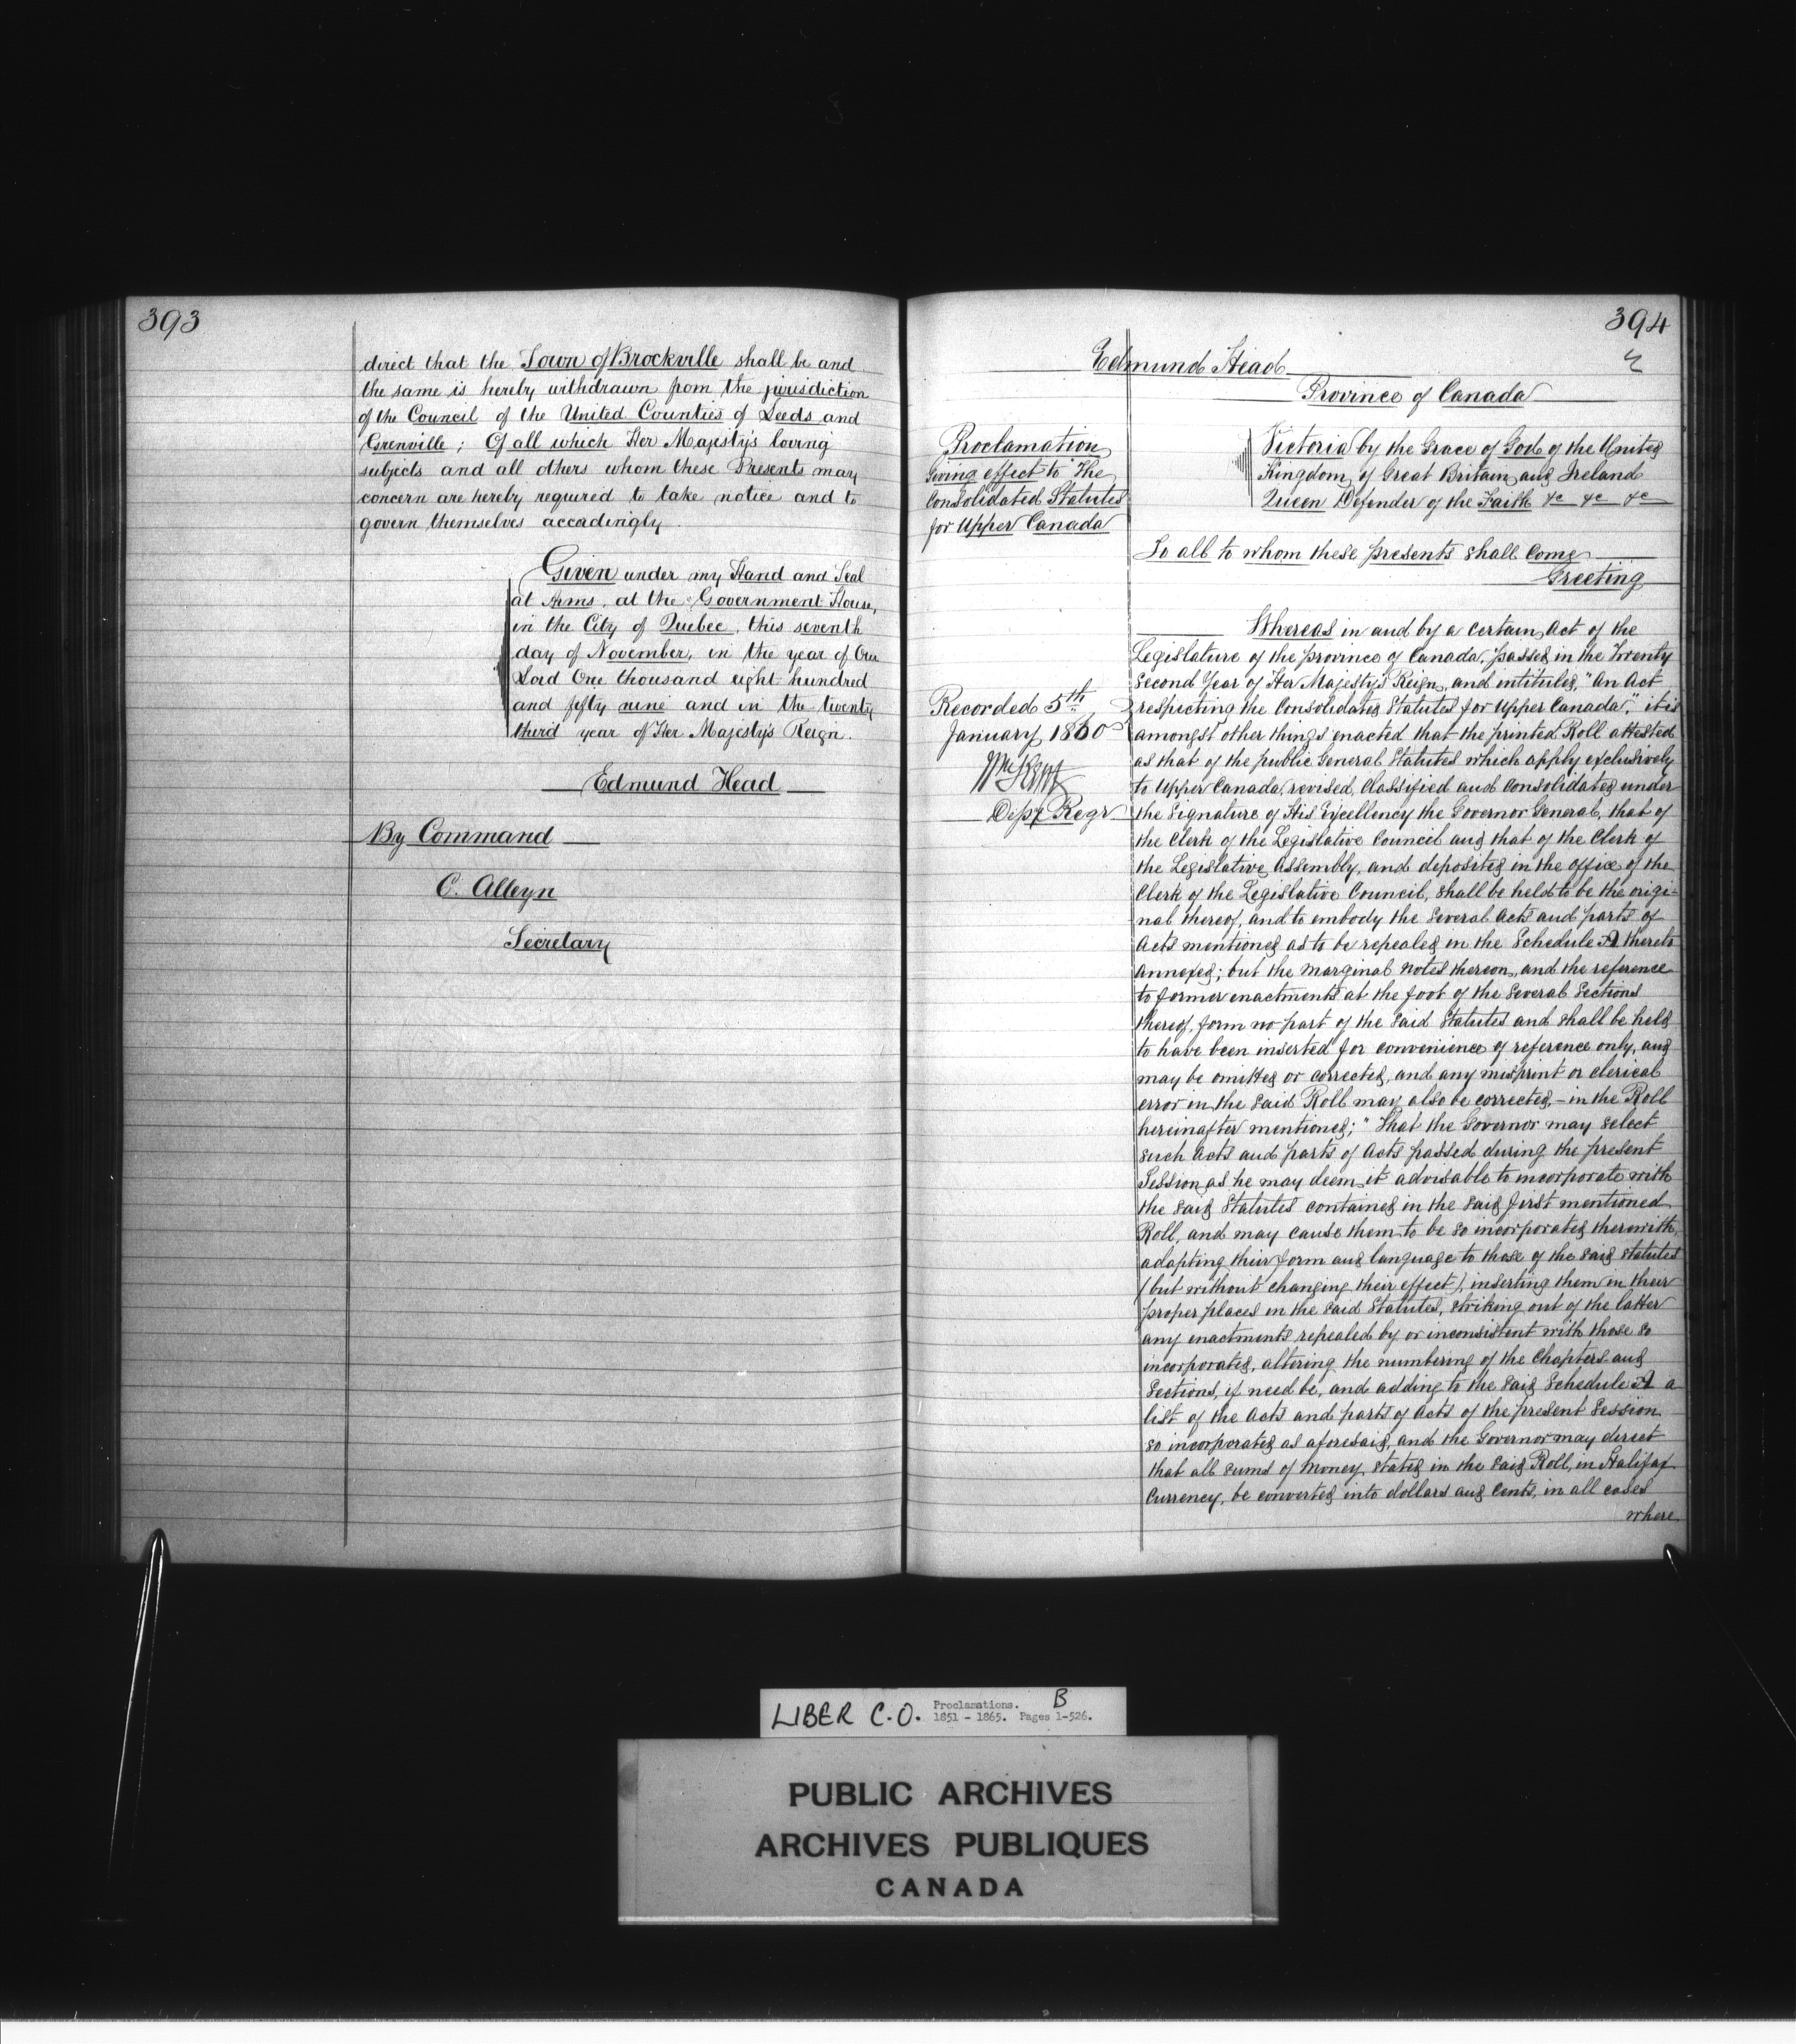 393
direct that the Town of Brockville shall be and
the same is hereby withdrawn from the jurisdiction
of the Council of the United Counties of Leeds and
Grenville; Of all which Her Majesty's loving
subjects and all others whom these Presents may
concern are hereby required to take notice and to
govern themselves accordingly.
Given under my Hand and Seal
at Arms, at the Government House,
in the City of Quebec, this seventh
day of November, in the year of Our
Lord One thousand eight hundred
and fifty nine and in the twenty
third year of Her Majesty's Reign.
Edmund Head
By Command
C. Alleyn
Secretary
394
Edmund Head
Province of Canada
Proclamation
Giving effect to "The
Consolidated Statutes
for Upper Canada
Victoria by the Grace of God of the United
Kingdom of Great Britain and Ireland
Queen Defender of the Faith &c &c &c
To all to whom these presents shall come
Greeting
Recorded 5th
January 1860
Depy Regr
Whereas in and by a certain Act of the
Legislature of the province of Canada, passed in the Twenty
Second Year of Her Majesty's Reign, and intituled, "An Act
respecting the Consolidated Statutes for Upper Canada," it is
amongst other things enacted that the printed Roll attested
as that of the public General Statutes which apply exclusively
to Upper Canada, revised, Classified and Consolidated under
the Signature of His Excellency the Governor General, that of
the Clerk of the Legislative Council and that of the Clerk of
the Legislative Assembly, and deposited in the Office of the
Clerk of the Legislative Council, shall be held to be the origi-
nal thereof, and to embody the several Acts and parts of
Acts mentioned as to be repealed in the Schedule A thereto
annexed; but the marginal notes thereon, and the reference
to former enactments at the foot of the several Sections
thereof, form no part of the said Statutes and shall be held
to have been inserted for convenience of reference only, and
may be omitted or corrected, and any misprint or clerical
error in the said Roll may also be corrected, - in the Roll
hereinafter mentioned; "That the Governor may select
such Acts and parts of Acts passed during the present
Session as he may deem it advisable to incorporate with
the said Statutes contained in the said first mentioned
Roll, and may cause them to be so incorporated therewith,
adapting their form and language to those of the said Statutes
(but without changing their effect), inserting them in their
proper places in the said Statutes, striking out of the latter
any enactments repealed by or inconsistent with those so
incorporated, altering the numbering of the Chapters and
Sections, if need be, and adding to the said Schedule A a
list of the Acts and parts of Acts of the present Session
so incorporated as aforesaid, and the Governor may direct
that all sums of Money stated in the said Roll, in Halifax
Currency, be converted into dollars and Cents, in all cases
where
LIBER C.O. Proclamations. B
1851 - 1865. Pages 1-526.
PUBLIC ARCHIVES
ARCHIVES PUBLIQUES
CANADA